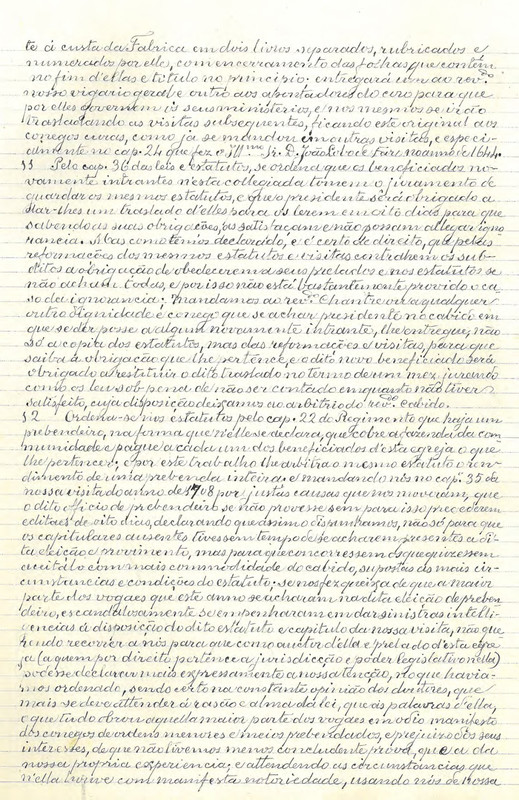 te á custa da Fabrica em dois livros separados, rubricados e
numerados por elle, com encerramento das folhas que contêm
no fim d'ellas e titulo no principio: entregará um ao rev.do
nosso vigario geral e outro aos apontadores do coro para que
por elles governem os seus ministerios, e nos mesmos se irão
trasladando as visitas subsequentes, ficando este original aos
conegos curas, como ja se mandou em outras visitas, e especi-
almente no cap. 24 que fez o Ill.mo Sr. D. João Lobo de Faro no anno de 1644.
51 Pelo cap. 36 das leis e estatutos, se ordena que os beneficiados no-
vamente intrantes n'esta collegiada tomem o juramento de
guardar os mesmos estatutos, e que o presidente será obrigado a
dar-lhes um traslado d'elles para os lerem em oito dias para que
sabendo as suas obrigações, as satisfaçam e não possam allegar igno
rancia. Mas como temos declarado, e é certo de direito, que pelas
reformações dos mesmos estatutos e visitas contrahem os sub-
ditos a obrigação de obedecerem a seus prelados e nos estatutos se
não acham todas, e por isso não está bastantemente provido o ca-
so da ignorancia; Mandamos ao rev.do Chantre ou a qualquer
outra dignidade e conego que se achar presidente no cabido em
que se der posse a algum novamente intrante, lhe entregue, não
só a copia dos estatutos, mas das reformações e visitas, para que
saiba a obrigação que lhe pertence, e o dito novo beneficiado será
obrigado a restituir o dito traslado no termo de um mez, jurando
como os leu sob pena de não ser contado emquanto não tiver
satisfeito, cuja disposição deixamos ao arbitrio do rev.do cabido.
52 Ordena-se nos estatutos pelo cap. 22 do Regimento que haja um
prebendeiro, na forma que n'elle se declara, que cobre a fazenda da com
munidade e pague a cada um dos beneficiados d'esta egreja o que
lhe pertencer; e por este trabalho lhe arbitra o mesmo estatuto o ren-
dimento de uma prebenda inteira: e mandando nós no cap. 35 da
nossa visita do anno de 1708 por justas causas que nos moveram, que
o dito officio de prebendeiro se não provesse sem para isso precederem
editaes de oito dias, declarando que assim o dispunhamos, não só para que
os capitulares ausentes tivessem tempo de se acharem presentes a di-
ta eleição e provimento, mas para que concorressem os que quizessem
acceital-o com mais commodidade do cabido, supostas as mais cir-
cumstancias e condições do estatuto; se nos fez queixa de que a maior
parte dos vogaes que este anno se acharam na dita eleição de preben
deiro, escandalosamente se empenharam em dar sinistras intelli-
gencias á disposição do dito estatuto e capitulo da nossa visita, não que
rendo recorrer a nós para que como auctor d'ella e prelado d'esta egre
ja (a quem por direito pertence a jurisdicção e poder legislativo n'ella)
podesse declarar mais expressamente a nossa tenção, no que havia-
mos ordenado, sendo certo na constante opinião dos doutores, que
mais se deve attender á rasão e alma da lei, que ás palavras d'ella,
o que tudo obrou aquella maior parte dos vogaes em odio manifesto
dos conegos de ordens menores e meios prebendados, e prejuizo dos seus
interesses, de que não tivemos menos concludente prova, que a da
nossa propria experiencia; e attendendo as circumstancias que
n'ella houve com manifesta notoriedade, usando nós de nossa